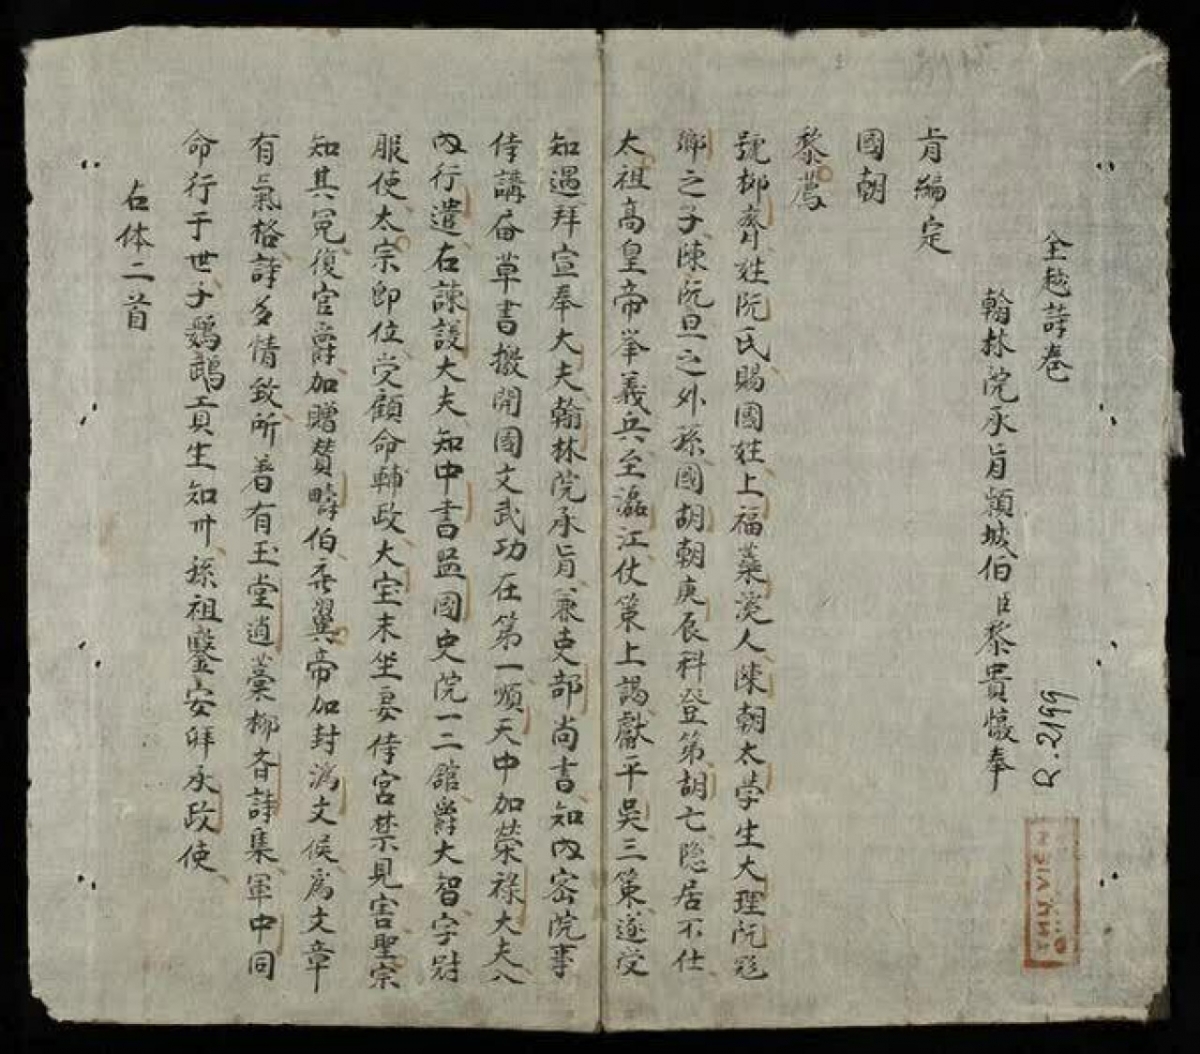 全越詩卷
翰林院承旨頴城伯臣黎貴惇奉
肯編定
國朝
黎廌
號柳齋姓阮氏賜國姓上福蘂溪人陳朝太学生大理阮
卿之子陳阮旦之外孫國胡朝庚辰科登第胡亡隐居不仕
太祖高皇帝举義兵至瀘江仗策上謁獻平吳三策遂受
知遇拜宣奉大夫翰林院承旨兼吏部尚書知内密院事
侍講届草書撥開國文武功在第一順天中加荣禄大夫入
内行遣右諫議大夫知中書监國史院一二舘爵大智字尉
服使太宗即位受顧命輔政大宝末坐宴侍宮禁見害聖宗
知其冤復官爵加贈賛疇伯襄翼帝加封濟文侯為文章
有氣格詩多情致所着有玉堂遺藁柳斉詩集軍中同
命行于世子鸚鵡貢生知州孫祖鑒安拜承政使
古体二首
R.2199